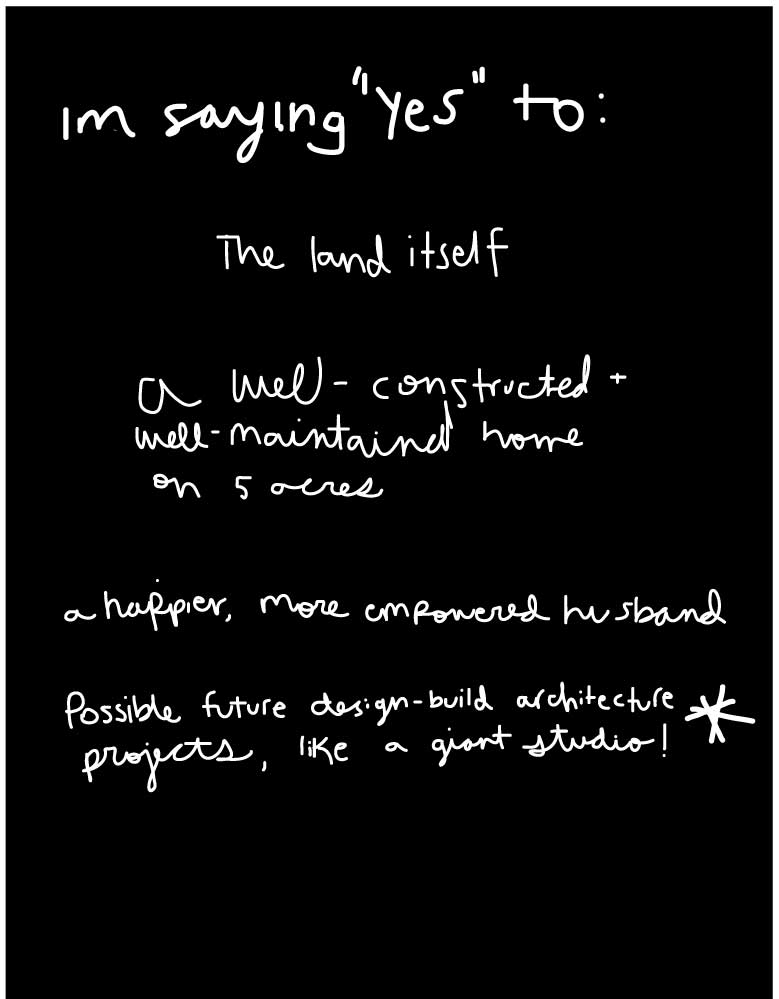 im saying "yes" to:
The land itself
a well-constructed +
well-maintaind home
on 5 acres
a happier, more empowered husband
Possible future design-build architecture *
projects, like a giant studio!